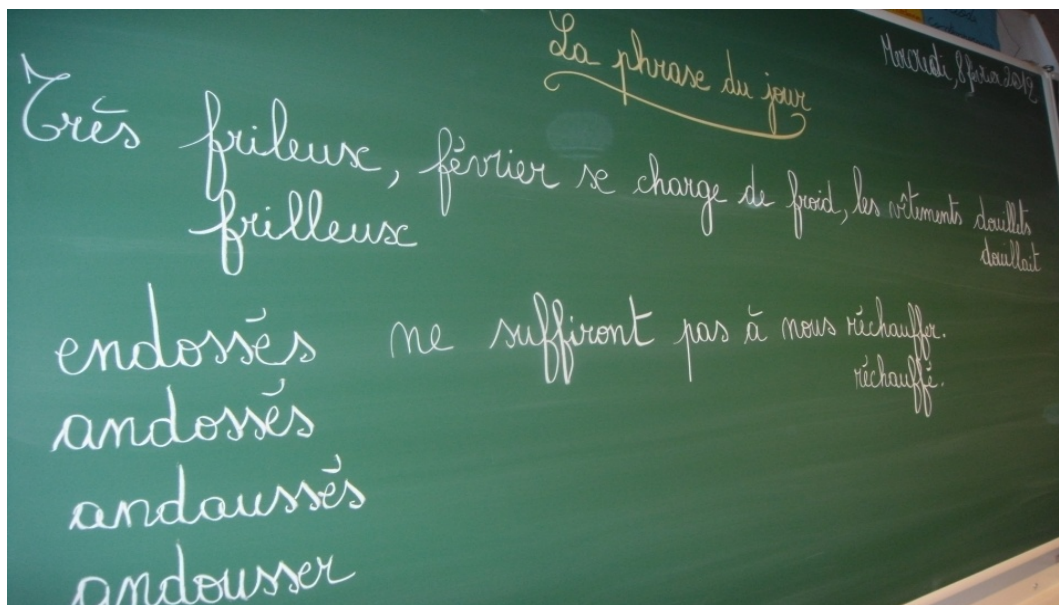 La phrase du jour
Mercredi, 8 février 2012
Très frileux, février se charge de froid, les vêtements douillets
frilleux
douillait
endossés ne suffiront pas à nous réchauffer.
réchauffé.
andossés
andaussés
andousser